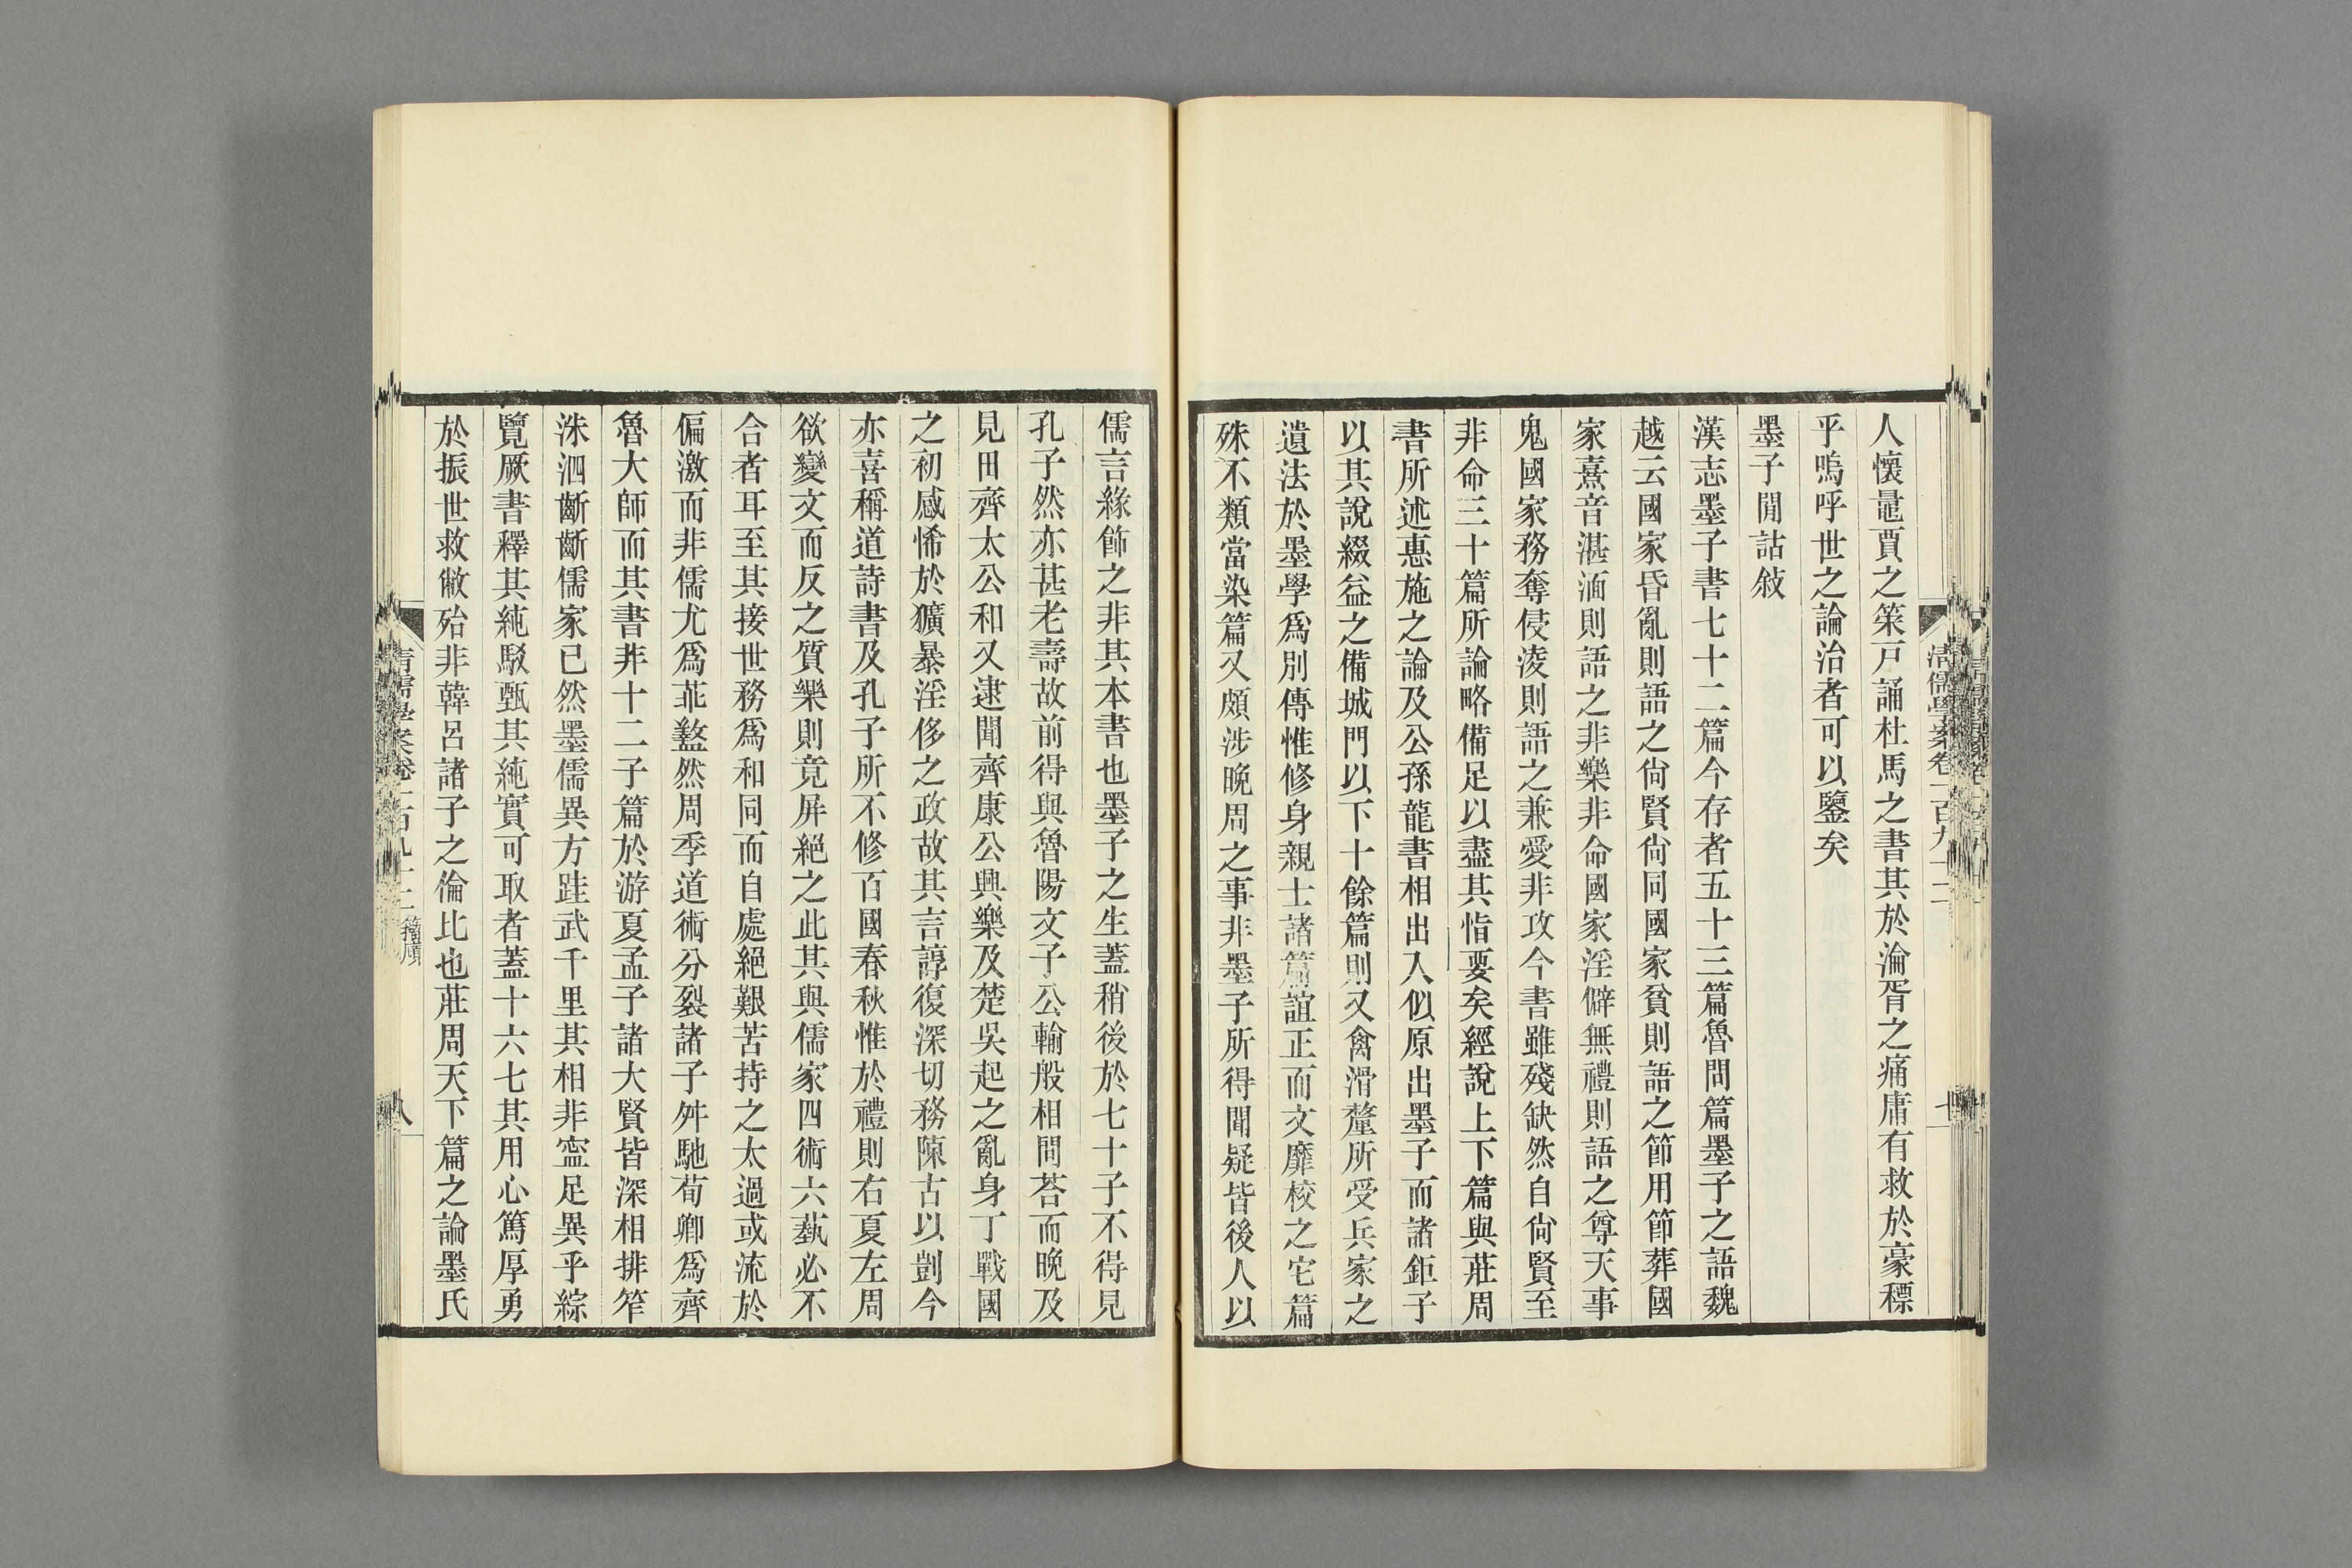 人懷鼂賈之筞戸誦杜馬之書其於淪胥之痛庸有救於豪穮
乎嗚呼世之論治者可以鑒矣
墨子閒詁敍
漢志墨子書七十二篇今存者五十三篇魯問篇墨子之語魏
越云國家昏亂則語之尙賢尙同國家貧則語之節用節葬國
家憙音湛湎則語之非樂非命國家淫僻無禮則語之尊天事
鬼國家務奪侵淩則語之兼愛非攻今書雖殘缺然自尙賢至
非命三十篇所論略備足以盡其恉要矣經說上下篇與莊周
書所述惠施之論及公孫龍書相出入似原出墨子而諸鉅子
以其說綴益之備城門以下十餘篇則又禽滑釐所受兵家之
遺法於墨學爲別傳惟修身親士諸篇誼正而文靡校之它篇
殊不類當染篇又頗涉晚周之事非墨子所得聞疑皆後人以
儒言緣飾之非其本書也墨子之生蓋稍後於七十子不得見
孔子然亦甚老壽故前得與魯陽文子公輸般相問荅而晚及
見田齊太公和又逮聞齊康公興樂及楚吳起之亂身丁戰國
之初感悕於獷暴淫侈之政故其言諄復深切務陳古以剴今
亦喜稱道詩書及孔子所不修百國春秋惟於禮則右夏左周
欲變文而反之質樂則竟屏絕之此其與儒家四術六蓺必不
合者耳至其接世務爲和同而自處絕艱苦持之太過或流於
偏激而非儒尤爲乖盭然周季道術分裂諸子舛馳荀卿爲齊
魯大師而其書非十二子篇於游夏孟子諸大賢皆深相排笮
洙泗齗齗儒家已然墨儒異方跬武千里其相非寍足異乎綜
覽厥書釋其紕駮甄其純實可取者蓋十六七其用心篤厚勇
於振世救敝殆非韓呂諸子之倫比也莊周天下篇之論墨氏
清儒學案卷一百九十二
八